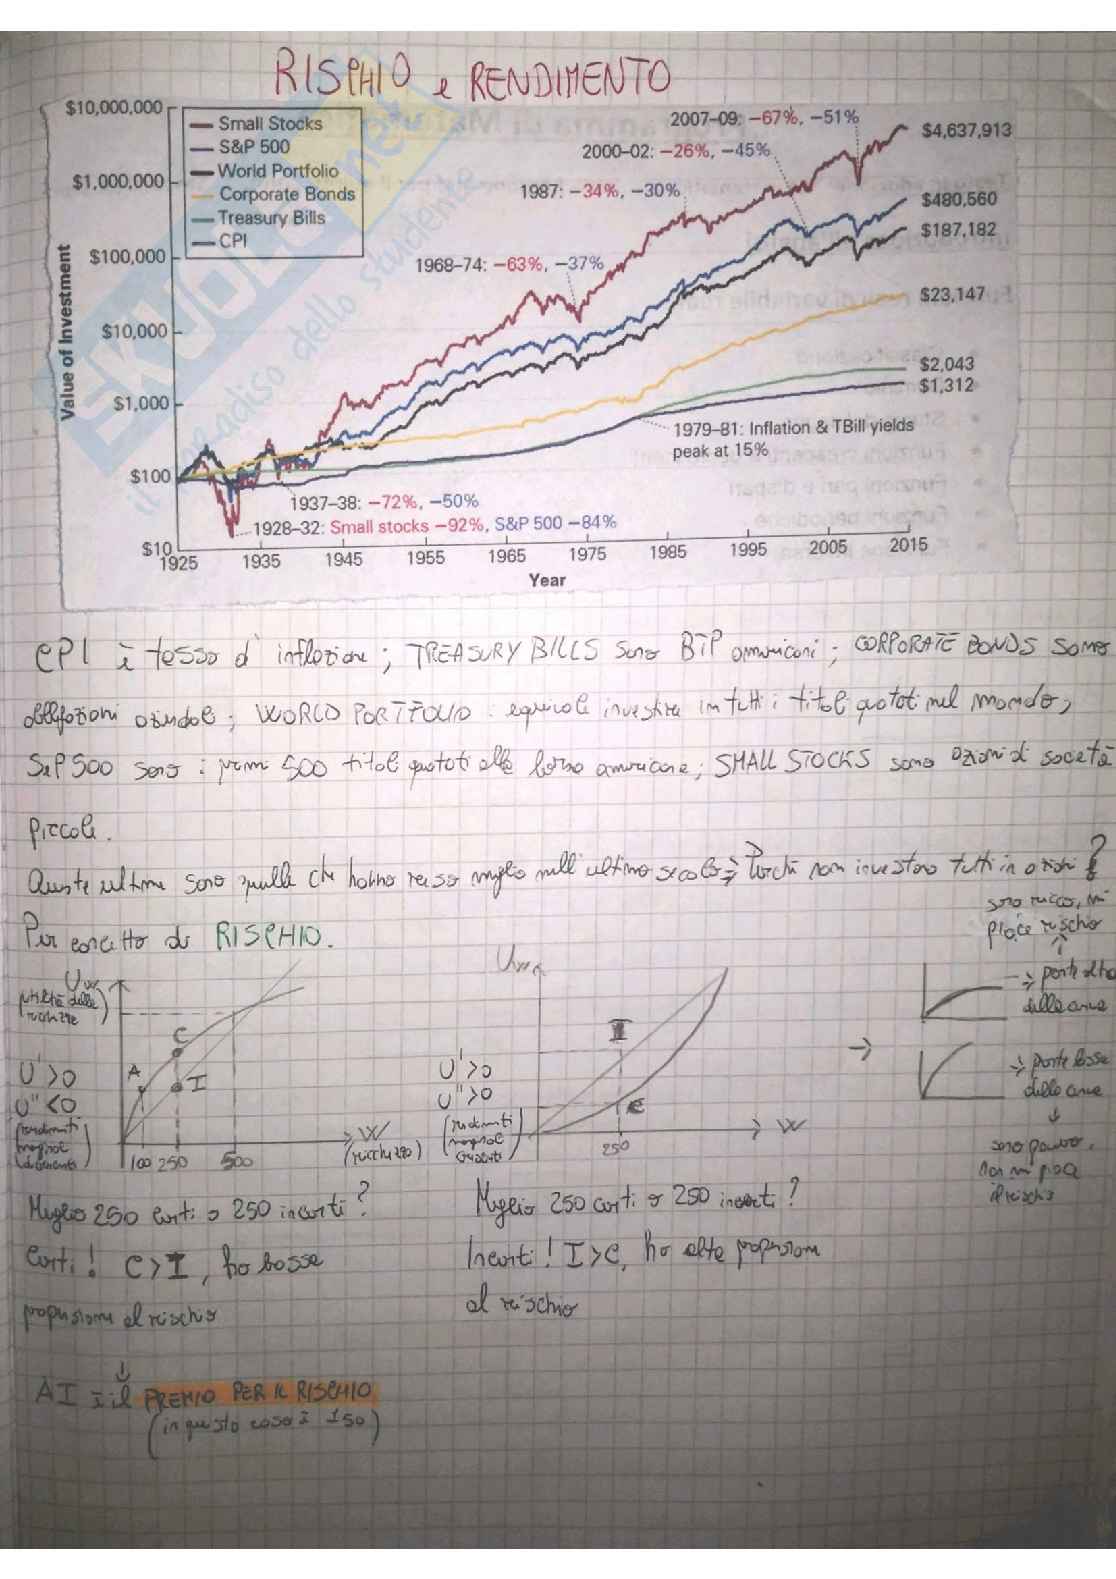 RISCHIO e RENDIMENTO
$10,000,000
$1,000,000
$100,000
$10,000
$1,000
$100
$10
Value of Investment
Small Stocks
S&P 500
World Portfolio
Corporate Bonds
Treasury Bills
CPI
2007–09: −67%, −51%
2000–02: −26%, −45%
1987: −34%, −30%
1968–74: −63%, −37%
$4,637,913
$480,560
$187,182
$23,147
$2,043
$1,312
1979–81: Inflation & TBill yields
peak at 15%
1937–38: −72%, −50%
1928–32: Small stocks −92%, S&P 500 −84%
1925 1935 1945 1955 1965 1975 1985 1995 2005 2015
Year
CPI è tasso d'inflazione; TREASURY BILLS sono BTP americani; CORPORATE BONDS sono
obbligazioni aziendali; WORLD PORTFOLIO: equivale investire in tutti i titoli quotati nel mondo;
S&P 500 sono i primi 500 titoli quotati alla borsa americana; SMALL STOCKS sono azioni di società
piccole.
Queste ultime sono quelle che hanno reso meglio nell'ultimo secolo ⇒ Perché non investono tutti in azioni?
Per concetto di RISCHIO.
sono ricco, mi
piace rischio
Uw
(utilità della
ricchezza)
U' >0
U'' <0
(rendimenti
marginali
decrescenti)
A
C
I
100 250 500
W
(ricchezza)
Uw
U' >0
U'' >0
(rendimenti
marginali
crescenti)
I
C
250
W
→
⇒ parte alta
della curva
⇒ parte bassa
della curva
sono povero,
non mi piace
il rischio
Meglio 250 certi o 250 incerti?
Certi! C>I, ho bassa
propensione al rischio
Meglio 250 certi o 250 incerti?
Incerti! I>C, ho alta propensione
al rischio
AI è il PREMIO PER IL RISCHIO
(in questo caso è 150)
SKUOLA.net
il paradiso dello studente